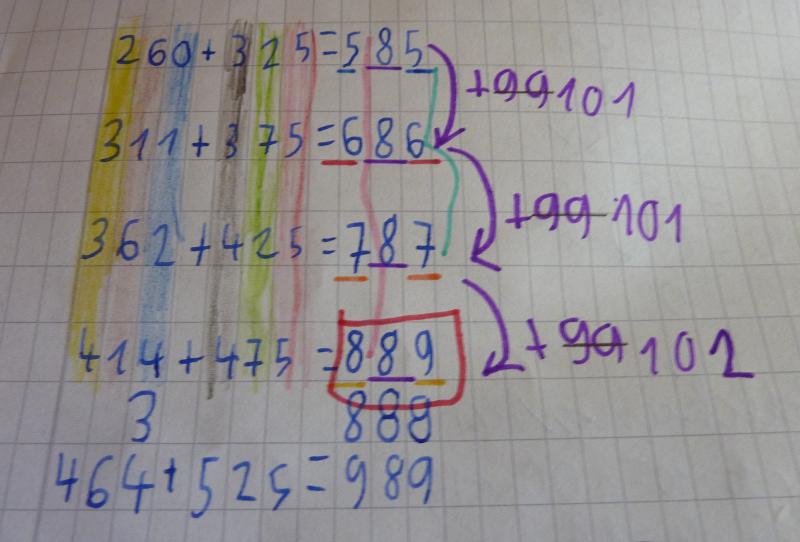 260+325=585
+99101
311+375=686
+99101
362+425=787
414+475=889
+99102
3 888
464+525=989